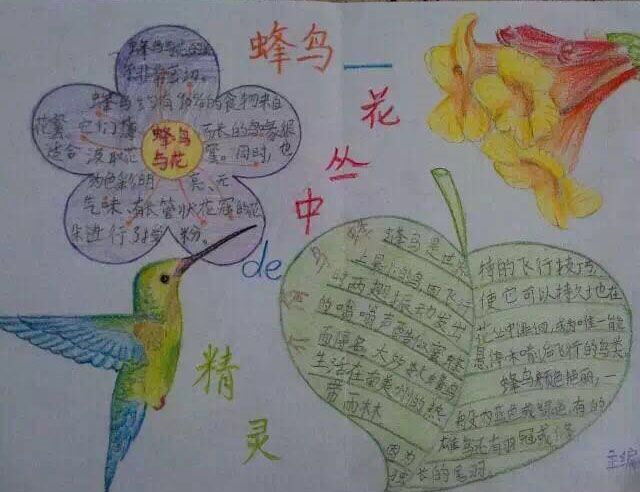 蜂鸟——
花
丛
中
de
精
灵
蜂鸟与花的关
系非常密切。
蜂鸟约有90%的食物来自
花蜜,它们 而长的鸟喙很
适合汲取花蜜。同时,也
为色彩鲜亮、无
气味、有长管状花冠的花
朵进行授粉。
蜂鸟
与花
蜂鸟是世界
上最小的鸟,因飞行
时两翅振动发出
的嗡嗡声酷似蜜蜂
而得名。大多数蜂鸟
生活在南美洲的热
带雨林
因为
特的飞行技巧
使它可以持久地在
花丛中徘徊,成为唯一能
悬停和向后飞行的鸟类。
蜂鸟颜色艳丽,一
般为蓝色或绿色,有的
雄鸟还有羽冠或修
长的毛羽。
主编